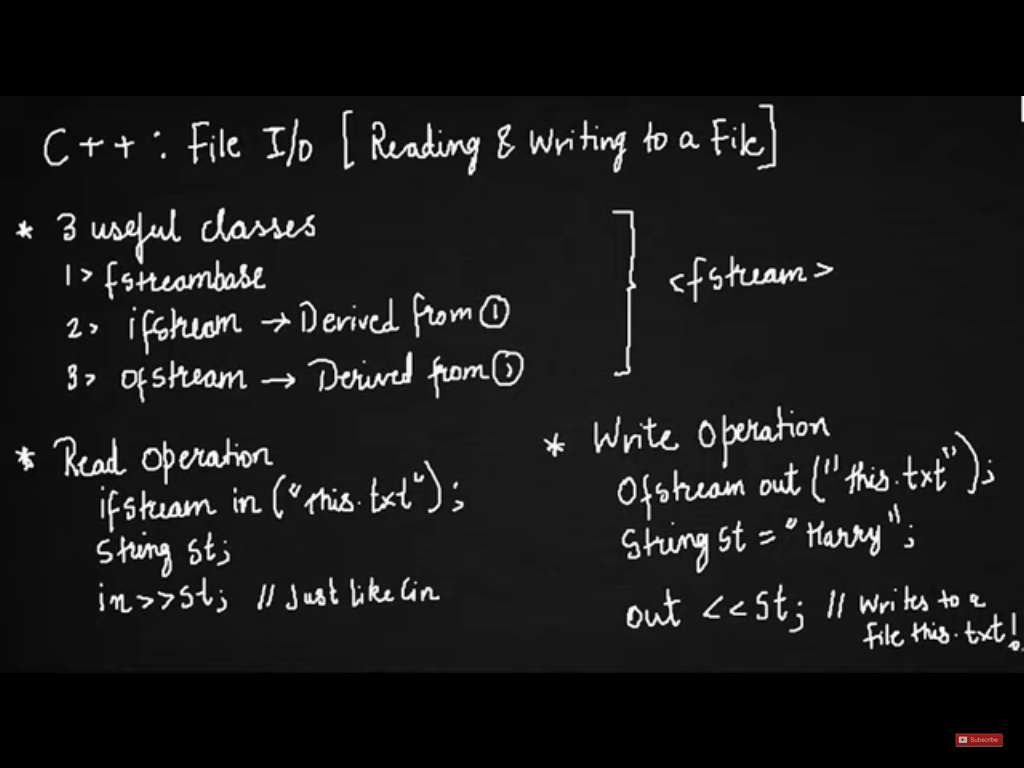 C++ : File I/o [Reading & Writing to a File]
* 3 useful classes
1> fstreambase
2> ifstream → Derived from ①
3> ofstream → Derived from ①
<fstream>
* Read operation
ifstream in ("this.txt");
string st;
in>>st; // Just like Cin
* Write operation
Ofstream out ("this.txt");
String st = "Harry";
out <<st; // writes to a
file this.txt!
Subscribe